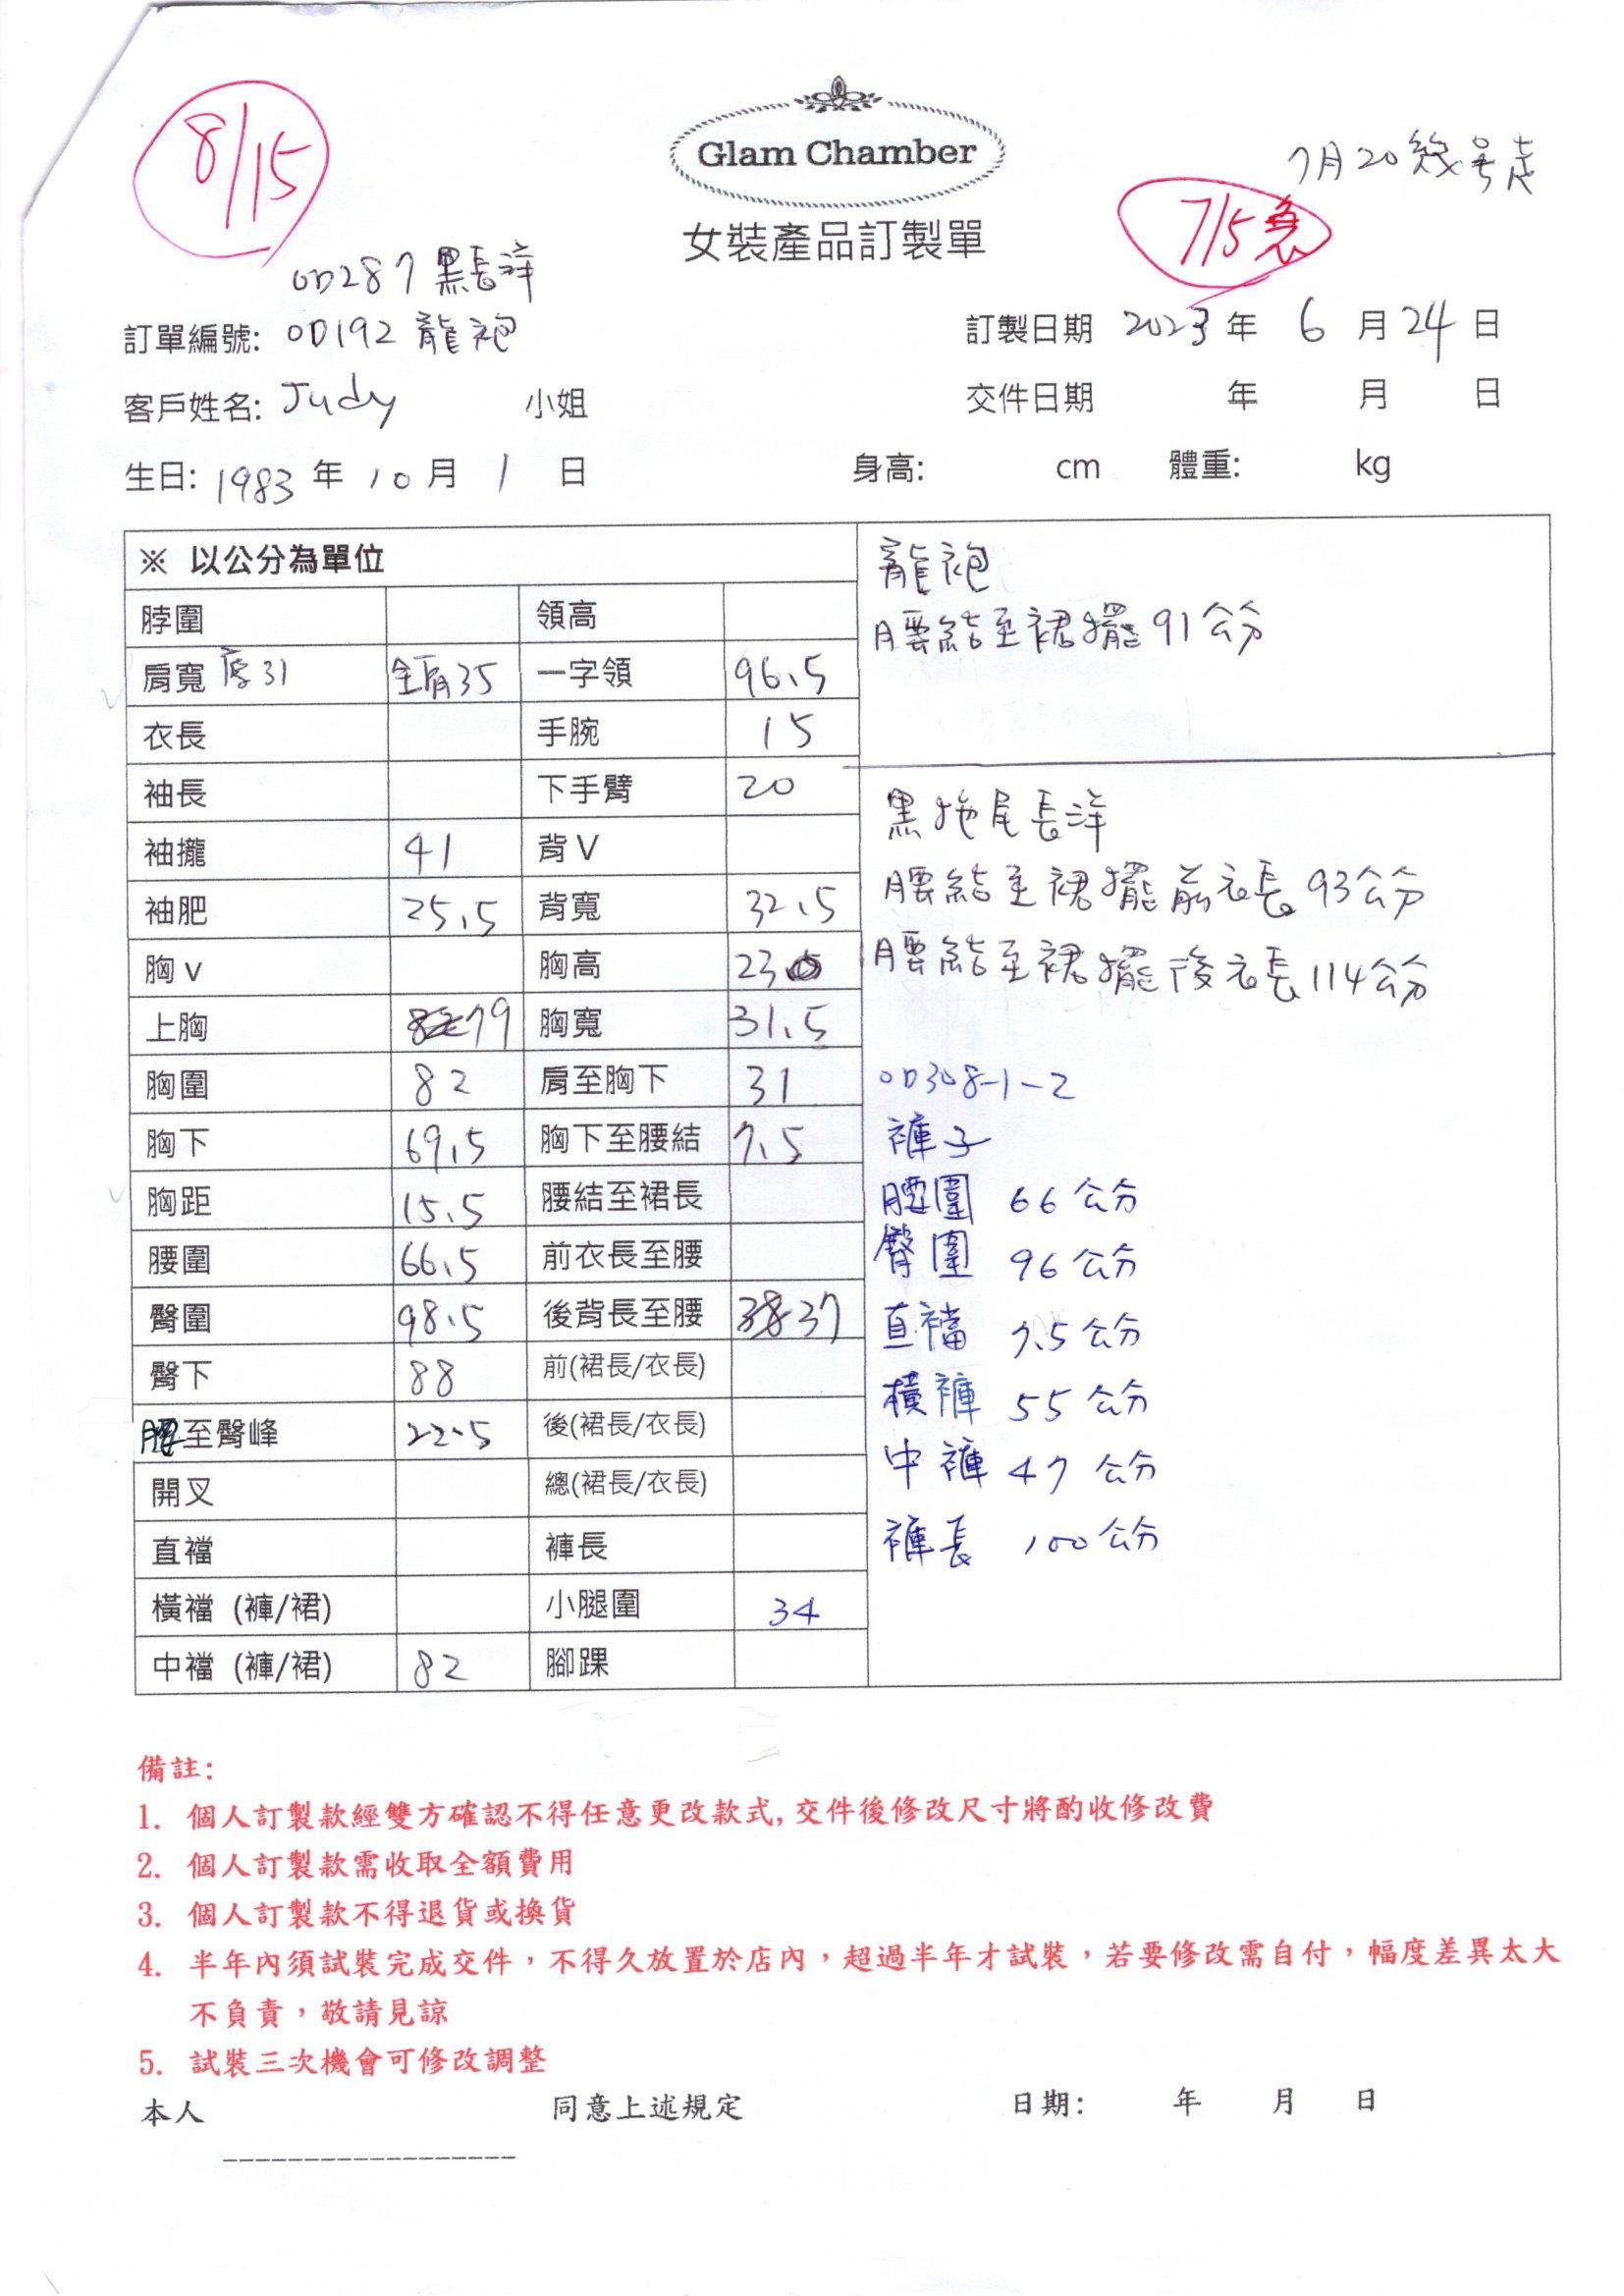 8/15
Glam Chamber
7月20幾号走
7/5急
女裝產品訂製單
OD287 黑長洋
訂單編號: OD192 龍袍
訂製日期 2023 年 6 月 24 日
客戶姓名: Judy 小姐
交件日期 年 月 日
生日: 1983 年 10 月 1 日
身高: cm 體重: kg
※ 以公分為單位
脖圍 領高
肩寬 31 全肩35 一字領 96.5
衣長 手腕 15
袖長 下手臂 20
袖攏 41 背V
袖肥 25.5 背寬 32.5
胸v 胸高 23
上胸 79 胸寬 31.5
胸圍 82 肩至胸下 31
胸下 69.5 胸下至腰結 7.5
胸距 15.5 腰結至裙長
腰圍 66.5 前衣長至腰
臀圍 98.5 後背長至腰 37
臀下 88 前(裙長/衣長)
腰至臀峰 22.5 後(裙長/衣長)
開叉 總(裙長/衣長)
直襠 褲長
橫襠 (褲/裙) 小腿圍 34
中襠 (褲/裙) 82 腳踝
龍袍
腰結至裙擺91公分
黑拖尾長洋
腰結至裙擺前衣長93公分
腰結至裙擺後衣長114公分
OD308-1-2
褲子
腰圍 66公分
臀圍 96公分
直襠 7.5公分
橫褲 55公分
中褲 47公分
褲長 100公分
備註:
1. 個人訂製款經雙方確認不得任意更改款式,交件後修改尺寸將酌收修改費
2. 個人訂製款需收取全額費用
3. 個人訂製款不得退貨或換貨
4. 半年內須試裝完成交件，不得久放置於店內，超過半年才試裝，若要修改需自付，幅度差異太大
不負責，敬請見諒
5. 試裝三次機會可修改調整
本人 同意上述規定 日期: 年 月 日